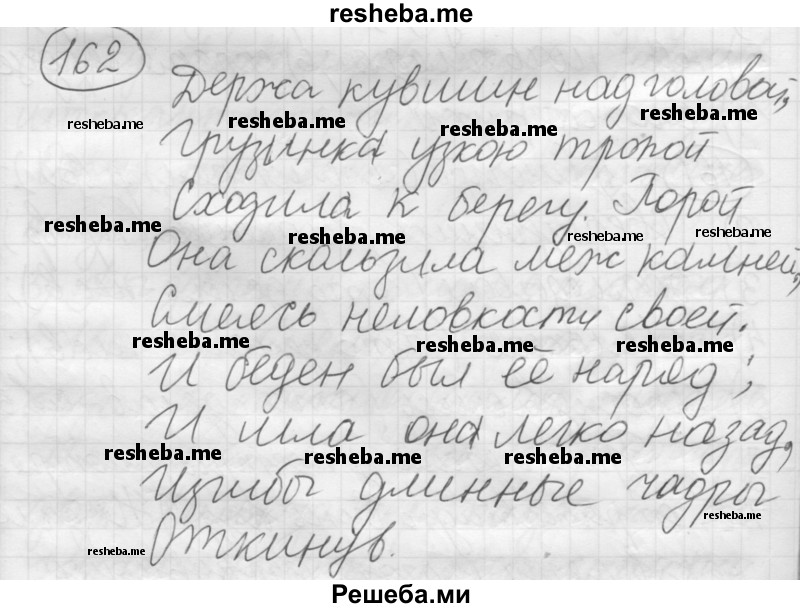 resheba.me
162
Держа кувшин над головой,
resheba.me resheba.me resheba.me resheba.me
Грузинка узкою тропой
Сходила к берегу. Порой
resheba.me resheba.me resheba.me resheba.me
Она скользила меж камней,
Смеясь неловкости своей.
resheba.me resheba.me resheba.me
И беден был её наряд;
И шла она легко назад,
resheba.me resheba.me resheba.me
Изгибы длинные чадры
resheba.me
Откинув.
resheba.me
Решеба.ми